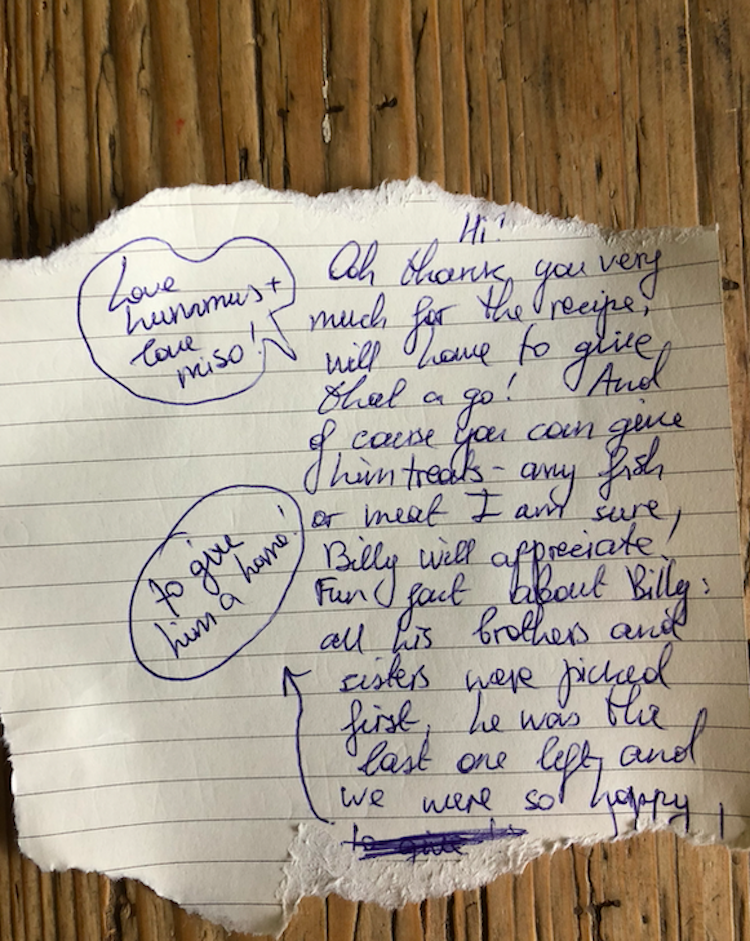 Hi!
Ooh thank you very
much for the recipe,
will have to give
that a go! And
of course you can give
him treats - any fish
or meat I am sure,
Billy will appreciate!
Fun fact about Billy:
all his brothers and
sisters were picked
first, he was the
last one left, and
we were so happy,
to give
him a home!
Love
hummus +
love
miso!